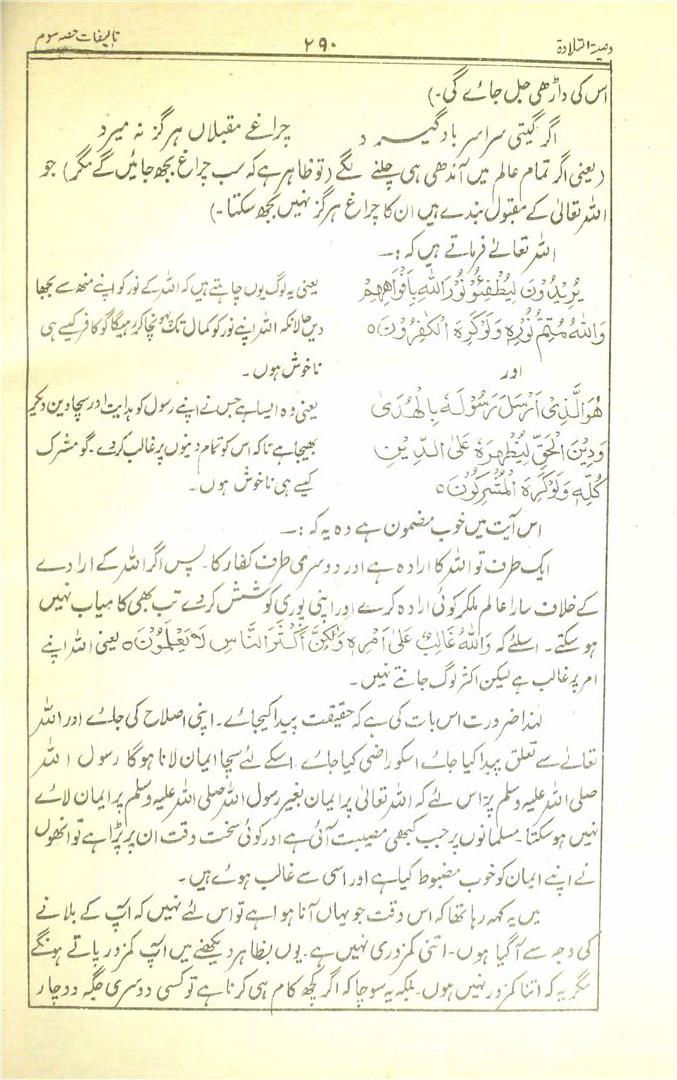 وصیۃ التلاوۃ ۲۹۰ تالیفات حصہ سوم
اس کی داڑھی جل جائے گی۔)
اگر گیتی سراسر باد گیرد چراغے مقبلاں ہرگز نہ میرد
(یعنی اگر تمام عالم میں آندھی ہی چلنے لگے (تو ظاہر ہے کہ سب چراغ بجھ جائیں گے مگر) جو
اللہ تعالیٰ کے مقبول بندے ہیں ان کا چراغ ہرگز نہیں بجھ سکتا۔)
اللہ تعالےٰ فرماتے ہیں کہ :۔
یُرِیْدُوْنَ لِیُطْفِئُوْا نُوْرَ اللّٰہِ بِاَفْوَاھِھِمْ
وَاللّٰہُ مُتِمُّ نُوْرِہٖ وَلَوْ کَرِہَ الْکٰفِرُوْنَ ہ
یعنی یہ لوگ یوں چاہتے ہیں کہ اللہ کے نور کو اپنے منھ سے بجھا
دیں حالانکہ اللہ اپنے نور کو کمال تک پہونچا کر رہیگا گو کافر کیسے ہی
ناخوش ہوں۔
اور
ھُوَ الَّذِیْ اَرْسَلَ رَسُوْلَہٗ بِالْھُدٰی
وَدِیْنِ الْحَقِّ لِیُظْھِرَہٗ عَلَی الدِّیْنِ
کُلِّہٖ وَلَوْ کَرِہَ الْمُشْرِکُوْنَ ہ
یعنی وہ ایسا ہے جس نے اپنے رسول کو ہدایت اور سچا دین دیکر
بھیجا ہے تاکہ اس کو تمام دینوں پر غالب کر دے۔ گو مشرک
کیسے ہی ناخوش ہوں۔
اس آیت میں خوب مضمون ہے وہ یہ کہ :۔
ایک طرف تو اللہ کا ارادہ ہے اور دوسری طرف کفار کا۔ پس اگر اللہ کے ارادے
کے خلاف سارا عالم ملکر کوئی ارادہ کرے اور اپنی پوری کوشش کر دے تب بھی کامیاب نہیں
ہو سکتے۔ اسلئے کہ وَاللّٰہُ غَالِبٌ عَلٰی اَمْرِہٖ وَلٰکِنَّ اَکْثَرَ النَّاسِ لَا یَعْلَمُوْنَ ہ یعنی اللہ اپنے
امر پر غالب ہے لیکن اکثر لوگ جانتے نہیں۔
لہٰذا ضرورت اس بات کی ہے کہ حقیقت پیدا کیجائے۔ اپنی اصلاح کی جائے اور اللہ
تعالےٰ سے تعلق پیدا کیا جائے اسکو راضی کیا جائے۔ اسکے لئے سچا ایمان لانا ہوگا رسول اللہ
صلی اللہ علیہ وسلم پر۔ اس لئے کہ اللہ تعالیٰ پر ایمان بغیر رسول اللہ صلی اللہ علیہ وسلم پر ایمان لائے
نہیں ہو سکتا۔ مسلمانوں پر جب کبھی مصیبت آئی ہے اور کوئی سخت وقت ان پر پڑا ہے تو انھوں
نے اپنے ایمان کو خوب مضبوط کیا ہے اور اسی سے غالب ہوئے ہیں۔
میں یہ کہہ رہا تھا کہ اس وقت جو یہاں آنا ہوا ہے تو اس لئے نہیں کہ آپ کے بلانے
کی وجہ سے آ گیا ہوں۔ اتنی کمزوری نہیں ہے۔ یوں بظاہر دیکھنے میں آپ کمزور پاتے ہونگے
مگر یہ کہ اتنا کمزور نہیں ہوں۔ بلکہ یہ سوچا کہ اگر کچھ کام ہی کرنا ہے تو کسی دوسری جگہ دو چار